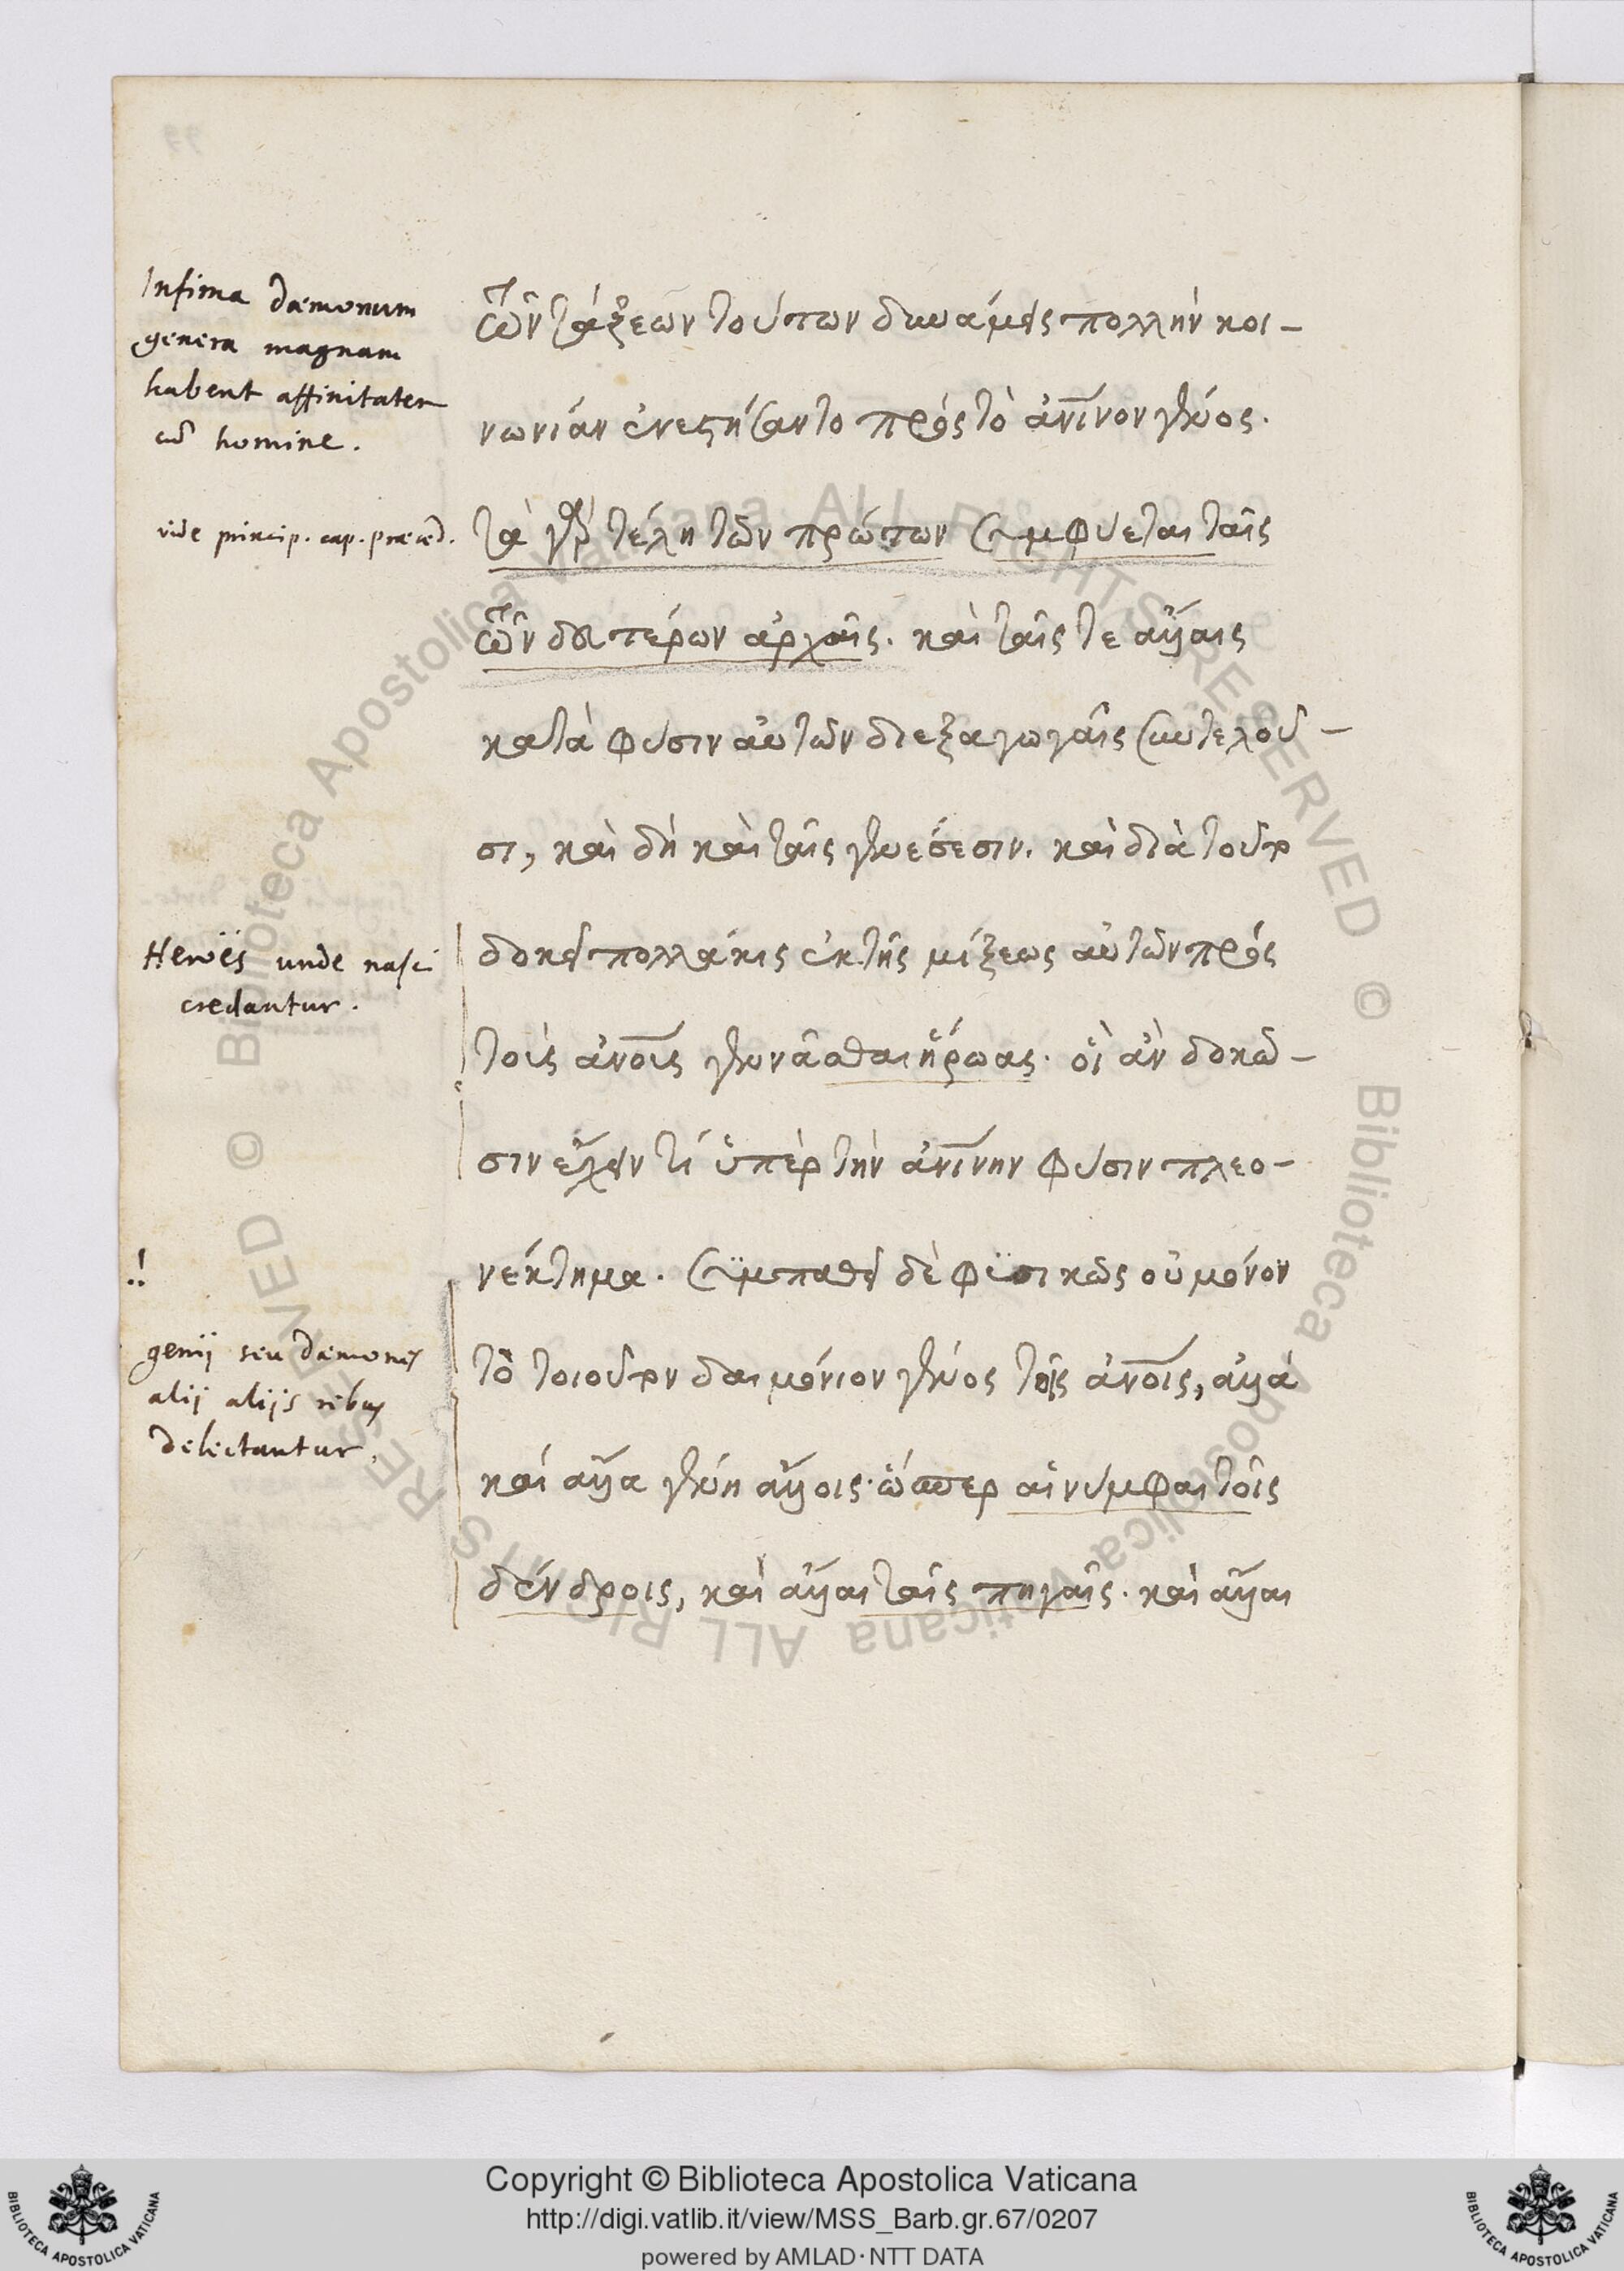 Infima daemonum
genera magnam
habent affinitatem
cũ homine.
vide princip. cap. praeced.
Heroës unde nasci
credantur.
genij seu daemones
alij alijs rebus
delectantur.
τῶν τάξεων τούτων δυνάμεις πολλὴν κοι-
νωνίαν ἐνεστήσαντο πρὸς τὸ ἀνινον γένος.
τὰ γὰρ τέλη τῶν πρώτων συμφύεται ταῖς
τῶν δευτέρων ἀρχαῖς. καὶ ταῖς τε ἄλλαις
κατὰ φύσιν αὐτῶν διεξαγωγαῖς συντελοῦ-
σι, καὶ δὴ καὶ ταῖς γενέσεσιν. καὶ διὰ τοῦτο
δοκεῖ πολλάκις ἐκ τῆς μίξεως αὐτῶν πρὸς
τοὺς ἀνοις γεννᾶσθαι ἥρωας. οἳ ἂν δοκῶ-
σιν ἔχειν τί ὑπὲρ τὴν ἀνινην φύσιν πλεο-
νέκτημα. συμπαθεῖ δὲ φυσικῶς οὐ μόνον
τὸ τοιοῦτον δαιμόνιον γένος τοῖς ἀνοις, ἀλλὰ
καὶ ἄλλα γένη ἄλλοις. ὥσπερ αἱ νύμφαι τοῖς
δένδροις, καὶ ἄλλαι ταῖς πηγαῖς. καὶ ἄλλαι
© Biblioteca Apostolica Vaticana ALL RIGHTS RESERVED © Biblioteca Apostolica Vaticana ALL RIGHTS RESERVED
Copyright © Biblioteca Apostolica Vaticana
http://digi.vatlib.it/view/MSS_Barb.gr.67/0207
powered by AMLAD·NTT DATA
BIBLIOTECA APOSTOLICA VATICANA
BIBLIOTECA APOSTOLICA VATICANA